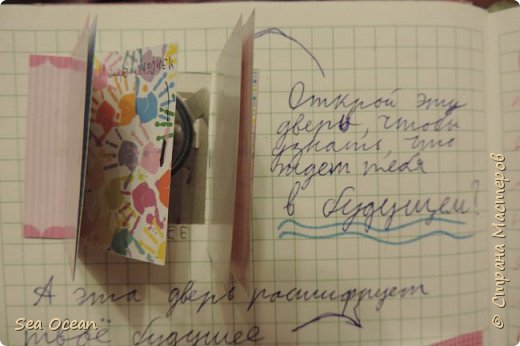 Открой эту
дверь, чтобы
узнать, что
ждет тебя
в будущем?
А эта дверь расшифрует
твоё будущее
Sea Ocean
© Страна Мастеров